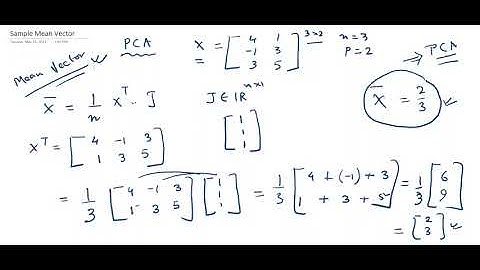 Sample Mean Vector
Mean Vector PCA
X = [4 1; -1 3; 3 5] 3×2 n = 3
= P = 2
⇒ PCA
X̄ = 1/n Xᵀ · J J ∈ ℝ n×1
[1 1 1]
X̄ = 2/3
Xᵀ = [4 -1 3; 1 3 5]
= 1/3 [4 -1 3; 1 3 5] [1 1 1] = 1/3 [4 + (-1) + 3; 1 + 3 + 5] = 1/3 [6; 9]
= [2; 3]